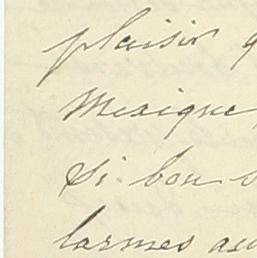 plaisir q
Mexique
Si bon s
larmes au